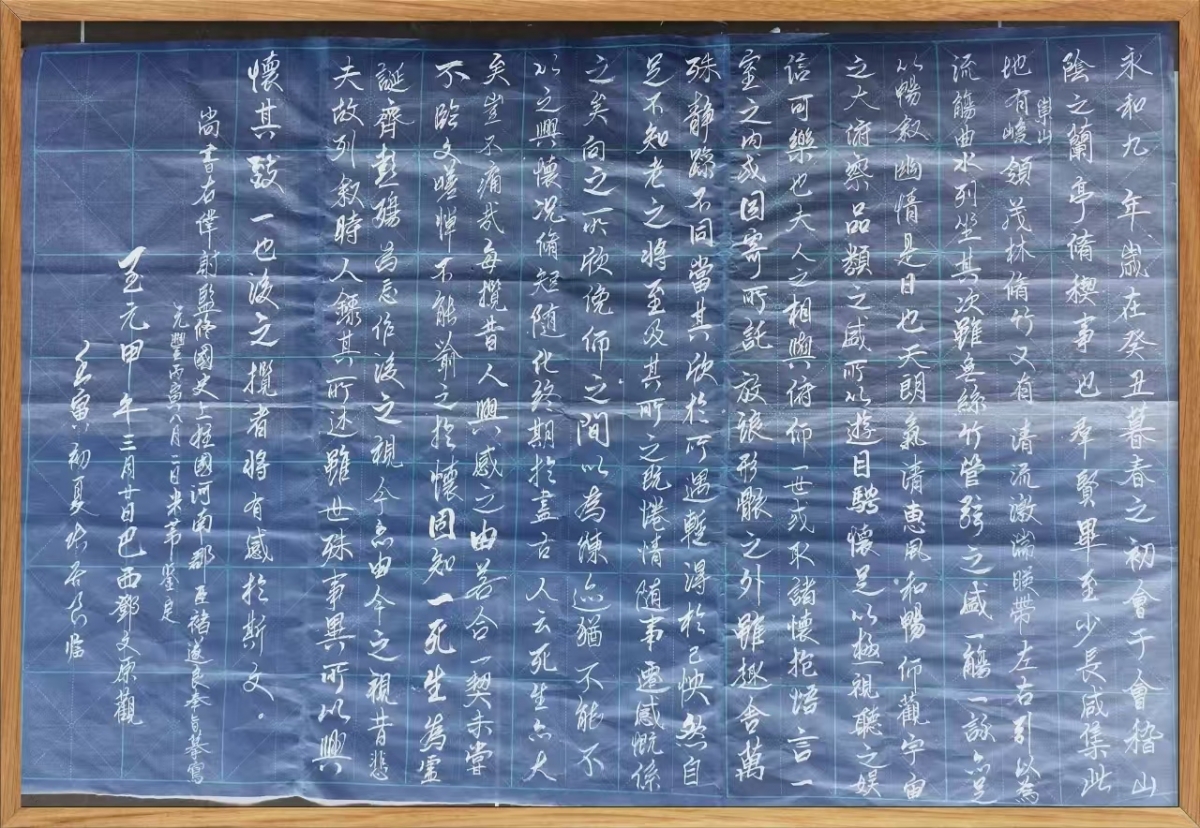 永和九年歲在癸丑暮春之初會于會稽山
陰之蘭亭脩稧事也羣賢畢至少長咸集此
地有崇山峻領茂林脩竹又有清流激湍暎帶左右引以為
流觴曲水列坐其次雖無絲竹管弦之盛一觴一詠亦足
以暢敘幽情是日也天朗氣清惠風和暢仰觀宇宙
之大俯察品類之盛所以遊目騁懷足以極視聽之娛
信可樂也夫人之相與俯仰一世或取諸懷抱悟言一
室之內或因寄所託放浪形骸之外雖趣舍萬
殊靜躁不同當其欣於所遇暫得於己怏然自
足不知老之將至及其所之既惓情隨事遷感慨係
之矣向之所欣俛仰之間以為陳迹猶不能不
以之興懷況脩短隨化終期於盡古人云死生亦大
矣豈不痛哉每攬昔人興感之由若合一契未嘗
不臨文嗟悼不能喻之於懷固知一死生為虛
誕齊彭殤為妄作後之視今亦由今之視昔悲
夫故列敘時人錄其所述雖世殊事異所以興
懷其致一也後之攬者將有感於斯文
尚書右僕射監修國史上柱國河南郡臣褚遂良奉旨摹寫
元豐丙寅八月二日米芾鑒定
至元甲午三月廿日巴西鄧文原觀
壬寅初夏臨